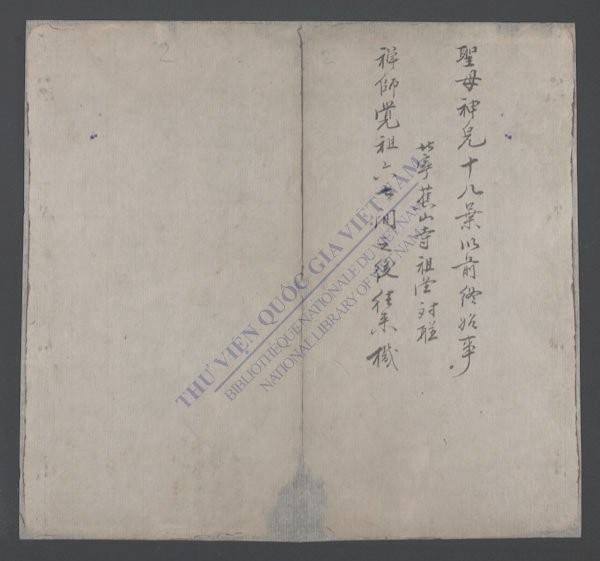 聖母神兒十八葉以前終始事
北寧蕉山寺祖堂对聯
禅師覺祖六间之後往来機
THƯ VIỆN QUỐC GIA VIỆT NAM
BIBLIOTHÈQUE NATIONALE DU VIETNAM
NATIONAL LIBRARY OF VIETNAM
2
2